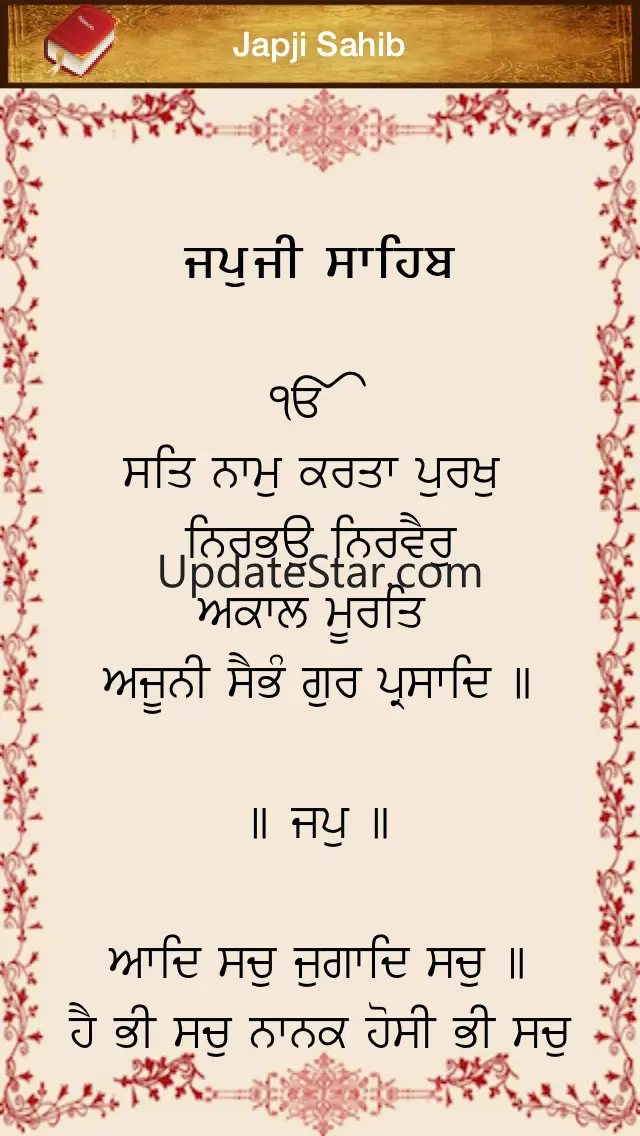 Japji Sahib
ਜਪੁਜੀ ਸਾਹਿਬ
ੴ
ਸਤਿ ਨਾਮੁ ਕਰਤਾ ਪੁਰਖੁ
ਨਿਰਭਉ ਨਿਰਵੈਰੁ
UpdateStar.com
ਅਕਾਲ ਮੂਰਤਿ
ਅਜੂਨੀ ਸੈਭੰ ਗੁਰ ਪ੍ਰਸਾਦਿ ॥
॥ ਜਪੁ ॥
ਆਦਿ ਸਚੁ ਜੁਗਾਦਿ ਸਚੁ ॥
ਹੈ ਭੀ ਸਚੁ ਨਾਨਕ ਹੋਸੀ ਭੀ ਸਚੁ